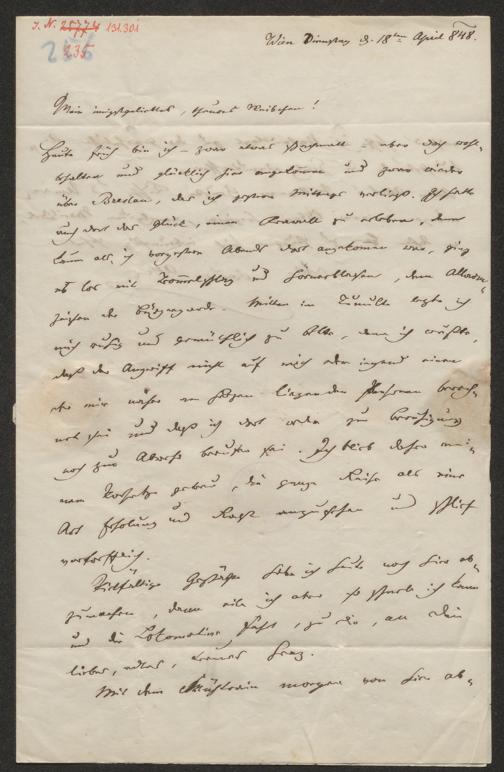 I. N. 25774 131.301
235
Wien Dienstag d. 18ten April 848.
Mein innigstgeliebtes, theures Weibchen!
Heute früh bin ich – zwar etwas – aber doch wohl-
behalten und glücklich hier angekommen und zwar wieder
über Breslau, das ich gestern Mittags verließ. Ich hatte
auch dort das Glück, einen Krawall zu erleben, denn
kaum als ich vorgestern Abends dort angekommen war, ging
es los mit Trommelschlag und Hörnerblasen, dem Allarm-
zeichen der Bürgergarde. Mitten im Tumulte legte ich
mich ruhig und gemüthlich zu Bette, denn ich wußte,
daß der Angriff nicht auf mich oder irgend einen
der mir nahe am Herzen liegenden Menschen berech-
net sei und daß ich dort weder zur Beruhigung
noch zur Abwehr berufen sei. Ich blieb daher mei-
nem Vorsatze getreu, die ganze Reise als eine
Art Erholung und Rast anzusehen und schlief
vortrefflich.
Vielfältige Geschäfte habe ich heute noch hier ab-
zumachen, dann eile ich aber so schnell ich kann
und die Lokomotive, zu dir, an dein
liebes, edles, treues Herz.
Mit dem Frühtrain morgen von hier ab-